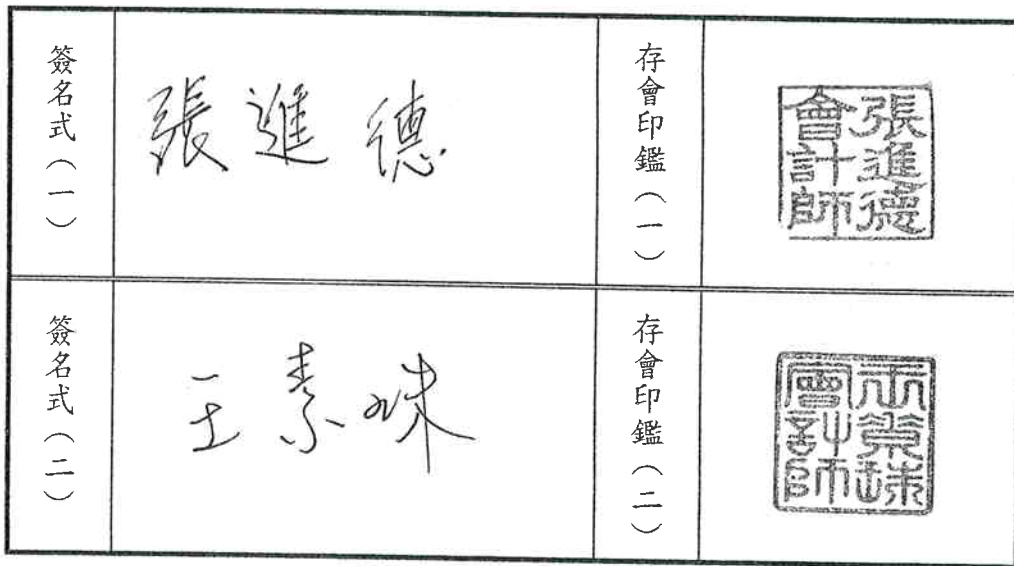 簽名式（一）
張進德
存會印鑑（一）
張進德
會計師
簽名式（二）
王素珠
存會印鑑（二）
王素珠
會計師